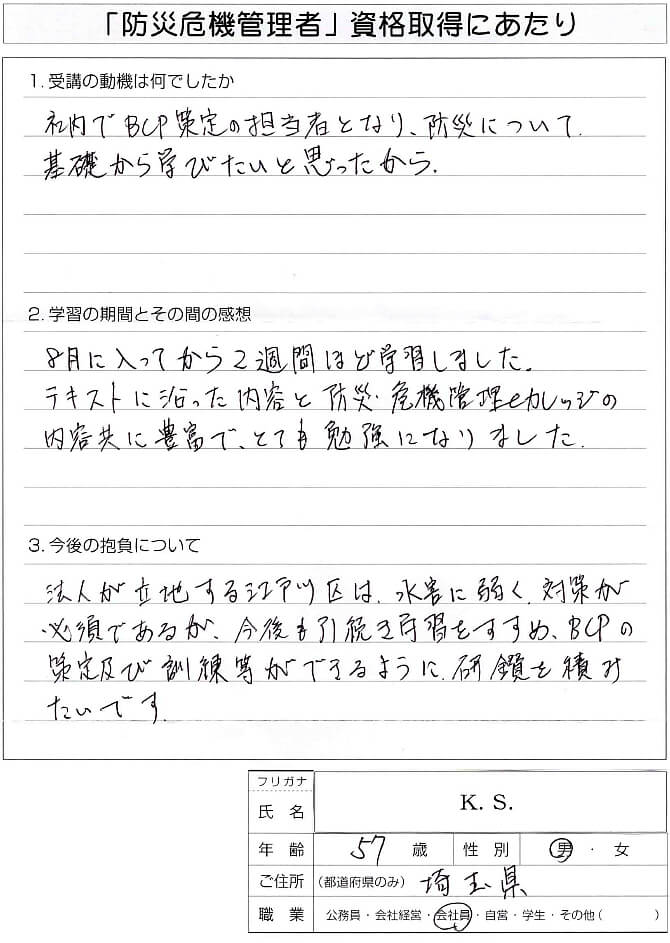 「防災危機管理者」資格取得にあたり
1. 受講の動機は何でしたか
社内でBCP策定の担当者となり、防災について
基礎から学びたいと思ったから.
2. 学習の期間とその間の感想
8月に入ってから2週間ほど学習しました.
テキストに沿った内容と防災・危機管理eカレッジの
内容共に豊富で、とても勉強になりました.
3. 今後の抱負について
法人が立地する江戸川区は、水害に弱く、対策が
必須であるが、今後も引続き学習をすすめ、BCPの
策定及び訓練等ができるように、研鑽を積み
たいです.
フリガナ
氏名 K. S.
年齢 57 歳 性別 男・女
ご住所 (都道府県のみ) 埼玉県
職業 公務員・会社経営・会社員・自営・学生・その他( )